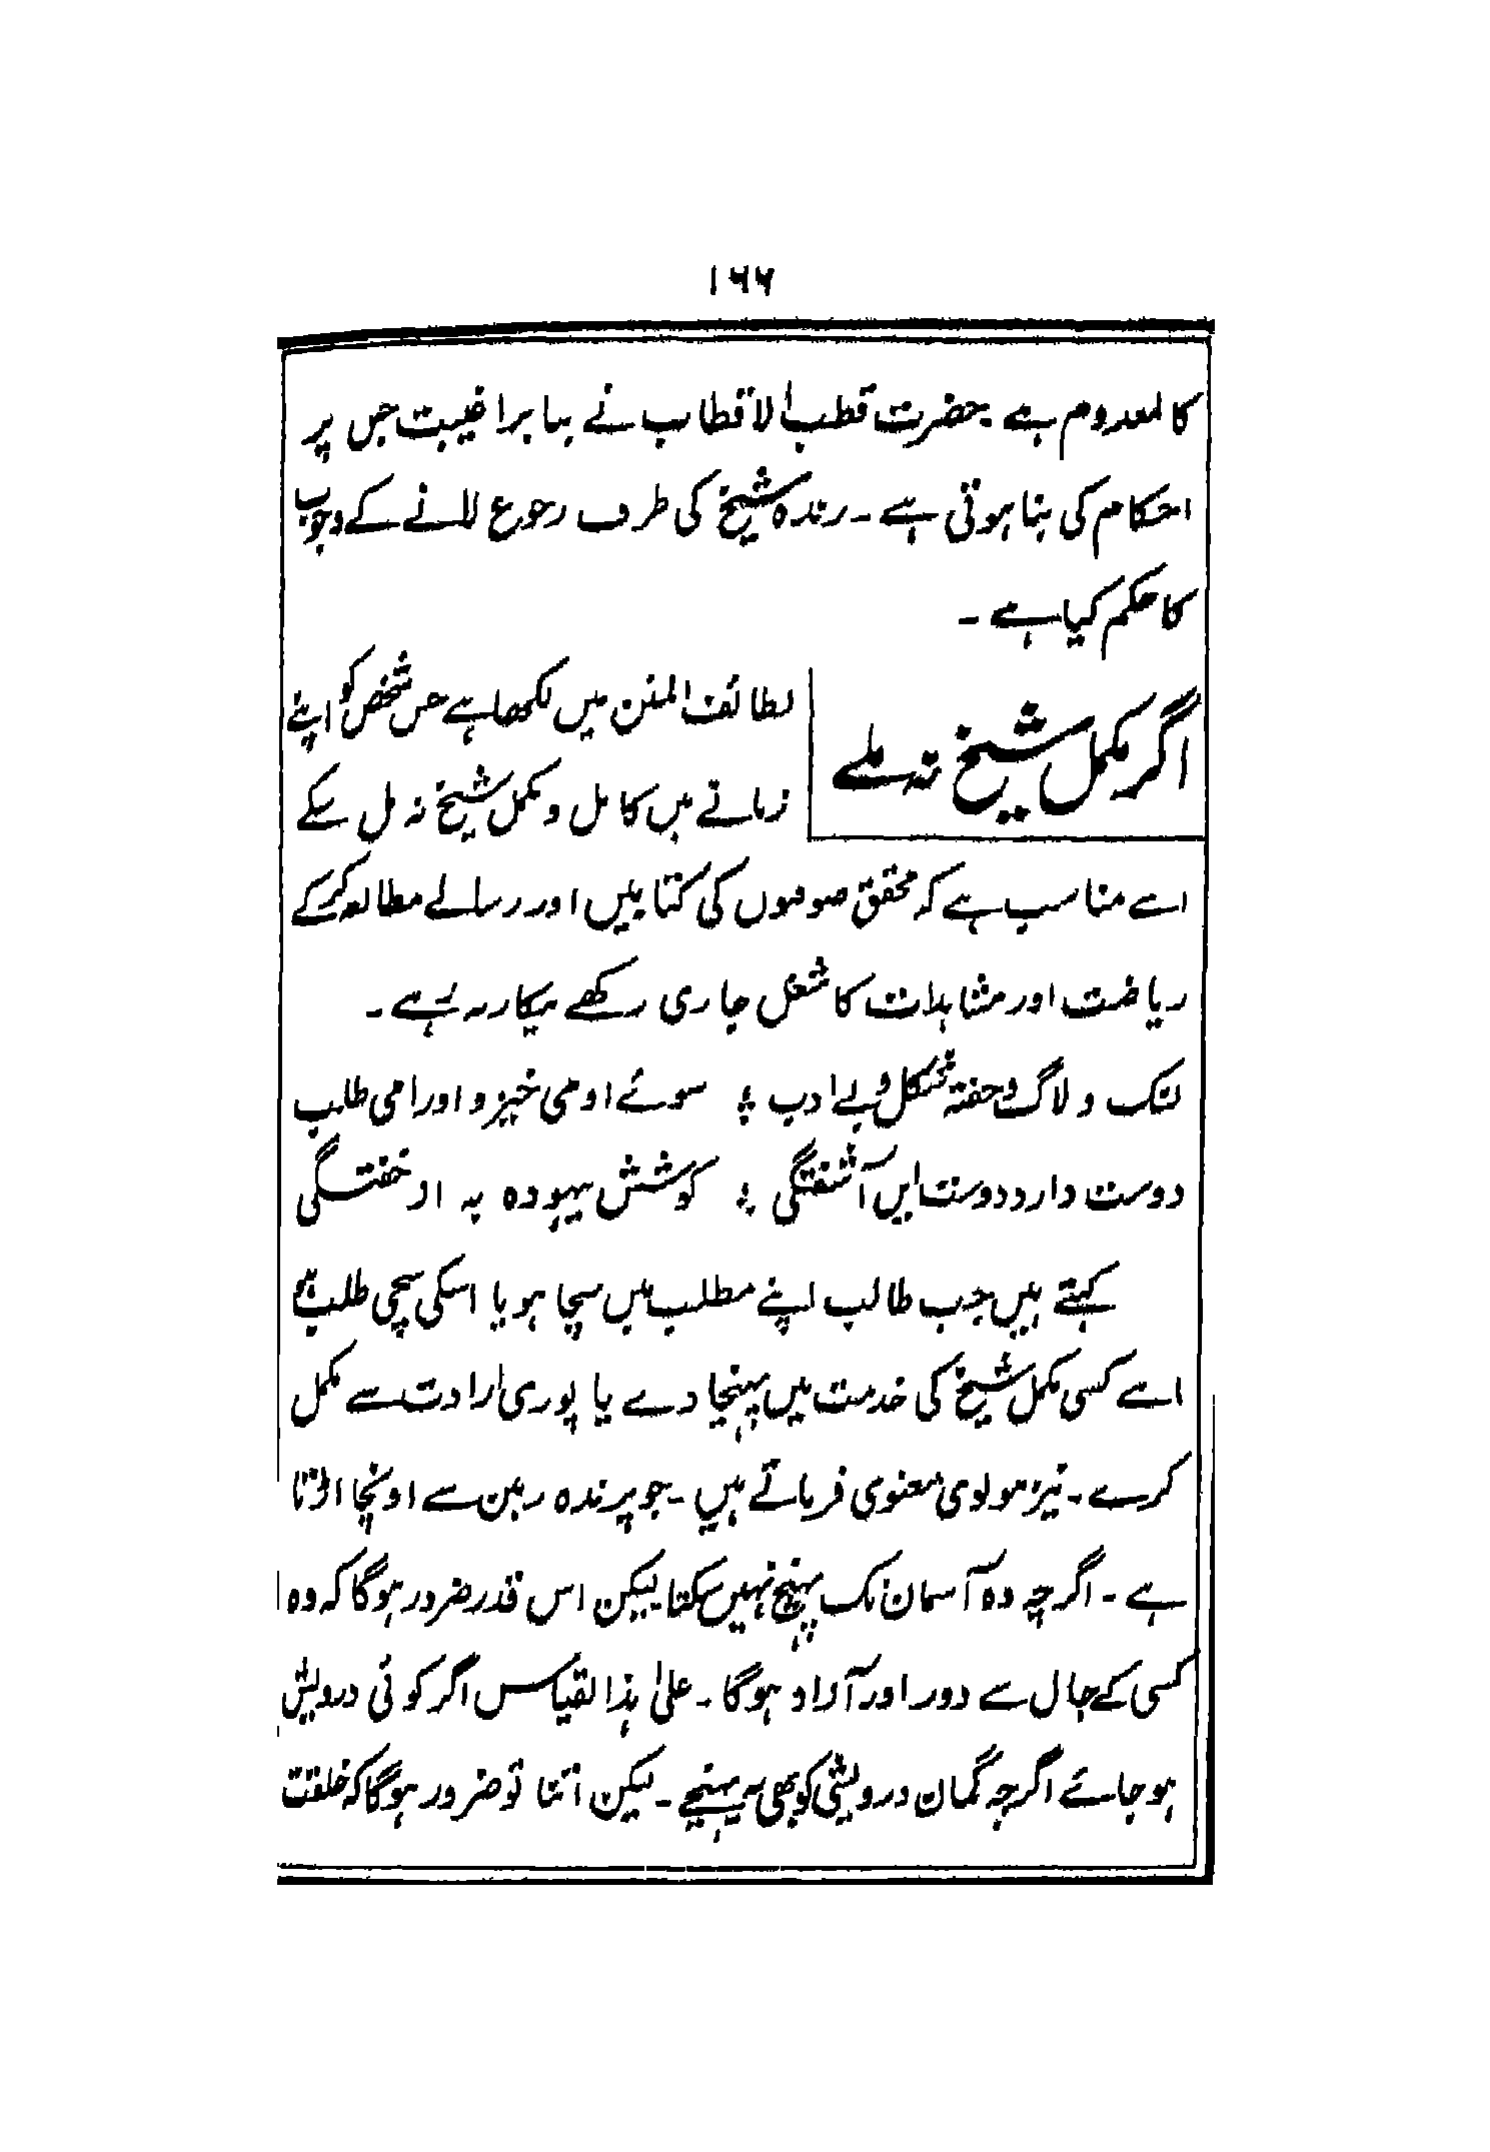 ۱۶۶
کا معدوم ہے ۔ حضرت قطب الاقطاب نے بنا بر اغیبت جس پر
احکام کی بنا ہوتی ہے ۔ زندہ شیخ کی طرف رجوع لانے کے وجوب
کا حکم کیا ہے ۔
اگر مکمل شیخ نہ ملے
لطائف المنن میں لکھا ہے جس شخص کو اپنے
زمانے میں کامل و مکمل شیخ نہ مل سکے
اسے مناسب ہے کہ محقق صوفیوں کی کتابیں اور رسالے مطالعہ کرکے
ریاضت اور مشاہدات کا شغل جاری رکھے بیکار نہ رہے ۔
لنک و لاگ و خفتہ شکل و بے ادب ؛ سوئے او می خیز و اورا می طلب
دوست دارد دوست ایں آشفتگی ؛ کوشش بیہودہ بہ از خفتگی
کہتے ہیں جب طالب اپنے مطلب میں سچا ہو یا اسکی سچی طلب ہو
اسے کسی مکمل شیخ کی خدمت میں پہنچا دے یا پوری ارادت سے مکمل
کرے ۔ نیز مولوی معنوی فرماتے ہیں ۔ جو پرندہ زمین سے اونچا اڑتا
ہے ۔ اگرچہ وہ آسمان تک پہنچ نہیں سکتا لیکن اس قدر ضرور ہوگا کہ وہ
کسی کے جال سے دور اور آزاد ہوگا ۔ علیٰ ہذا القیاس اگر کوئی درویش
ہو جائے اگرچہ گمان درویشی کو بھی نہ پہنچے ۔ لیکن اتنا تو ضرور ہوگا کہ خلقت